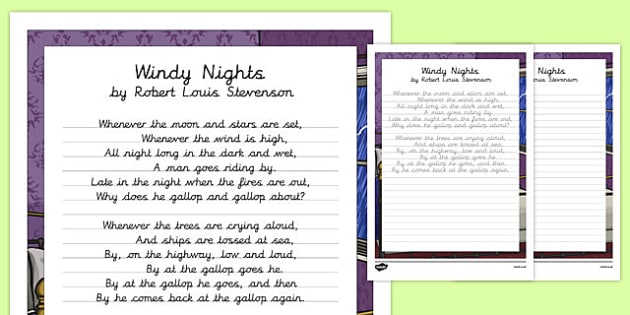 Windy Nights
by Robert Louis Stevenson
Whenever the moon and stars are set,
Whenever the wind is high,
All night long in the dark and wet,
A man goes riding by.
Late in the night when the fires are out,
Why does he gallop and gallop about?
Whenever the trees are crying aloud,
And ships are tossed at sea,
By, on the highway, low and loud,
By at the gallop goes he.
By at the gallop he goes, and then
By he comes back at the gallop again.
Windy Nights
by Robert Louis Stevenson
Whenever the moon and stars are set,
Whenever the wind is high,
All night long in the dark and wet,
A man goes riding by.
Late in the night when the fires are out,
Why does he gallop and gallop about?
Whenever the trees are crying aloud,
And ships are tossed at sea,
By, on the highway, low and loud,
By at the gallop goes he.
By at the gallop he goes, and then
By he comes back at the gallop again.
Nights
Louis Stevenson